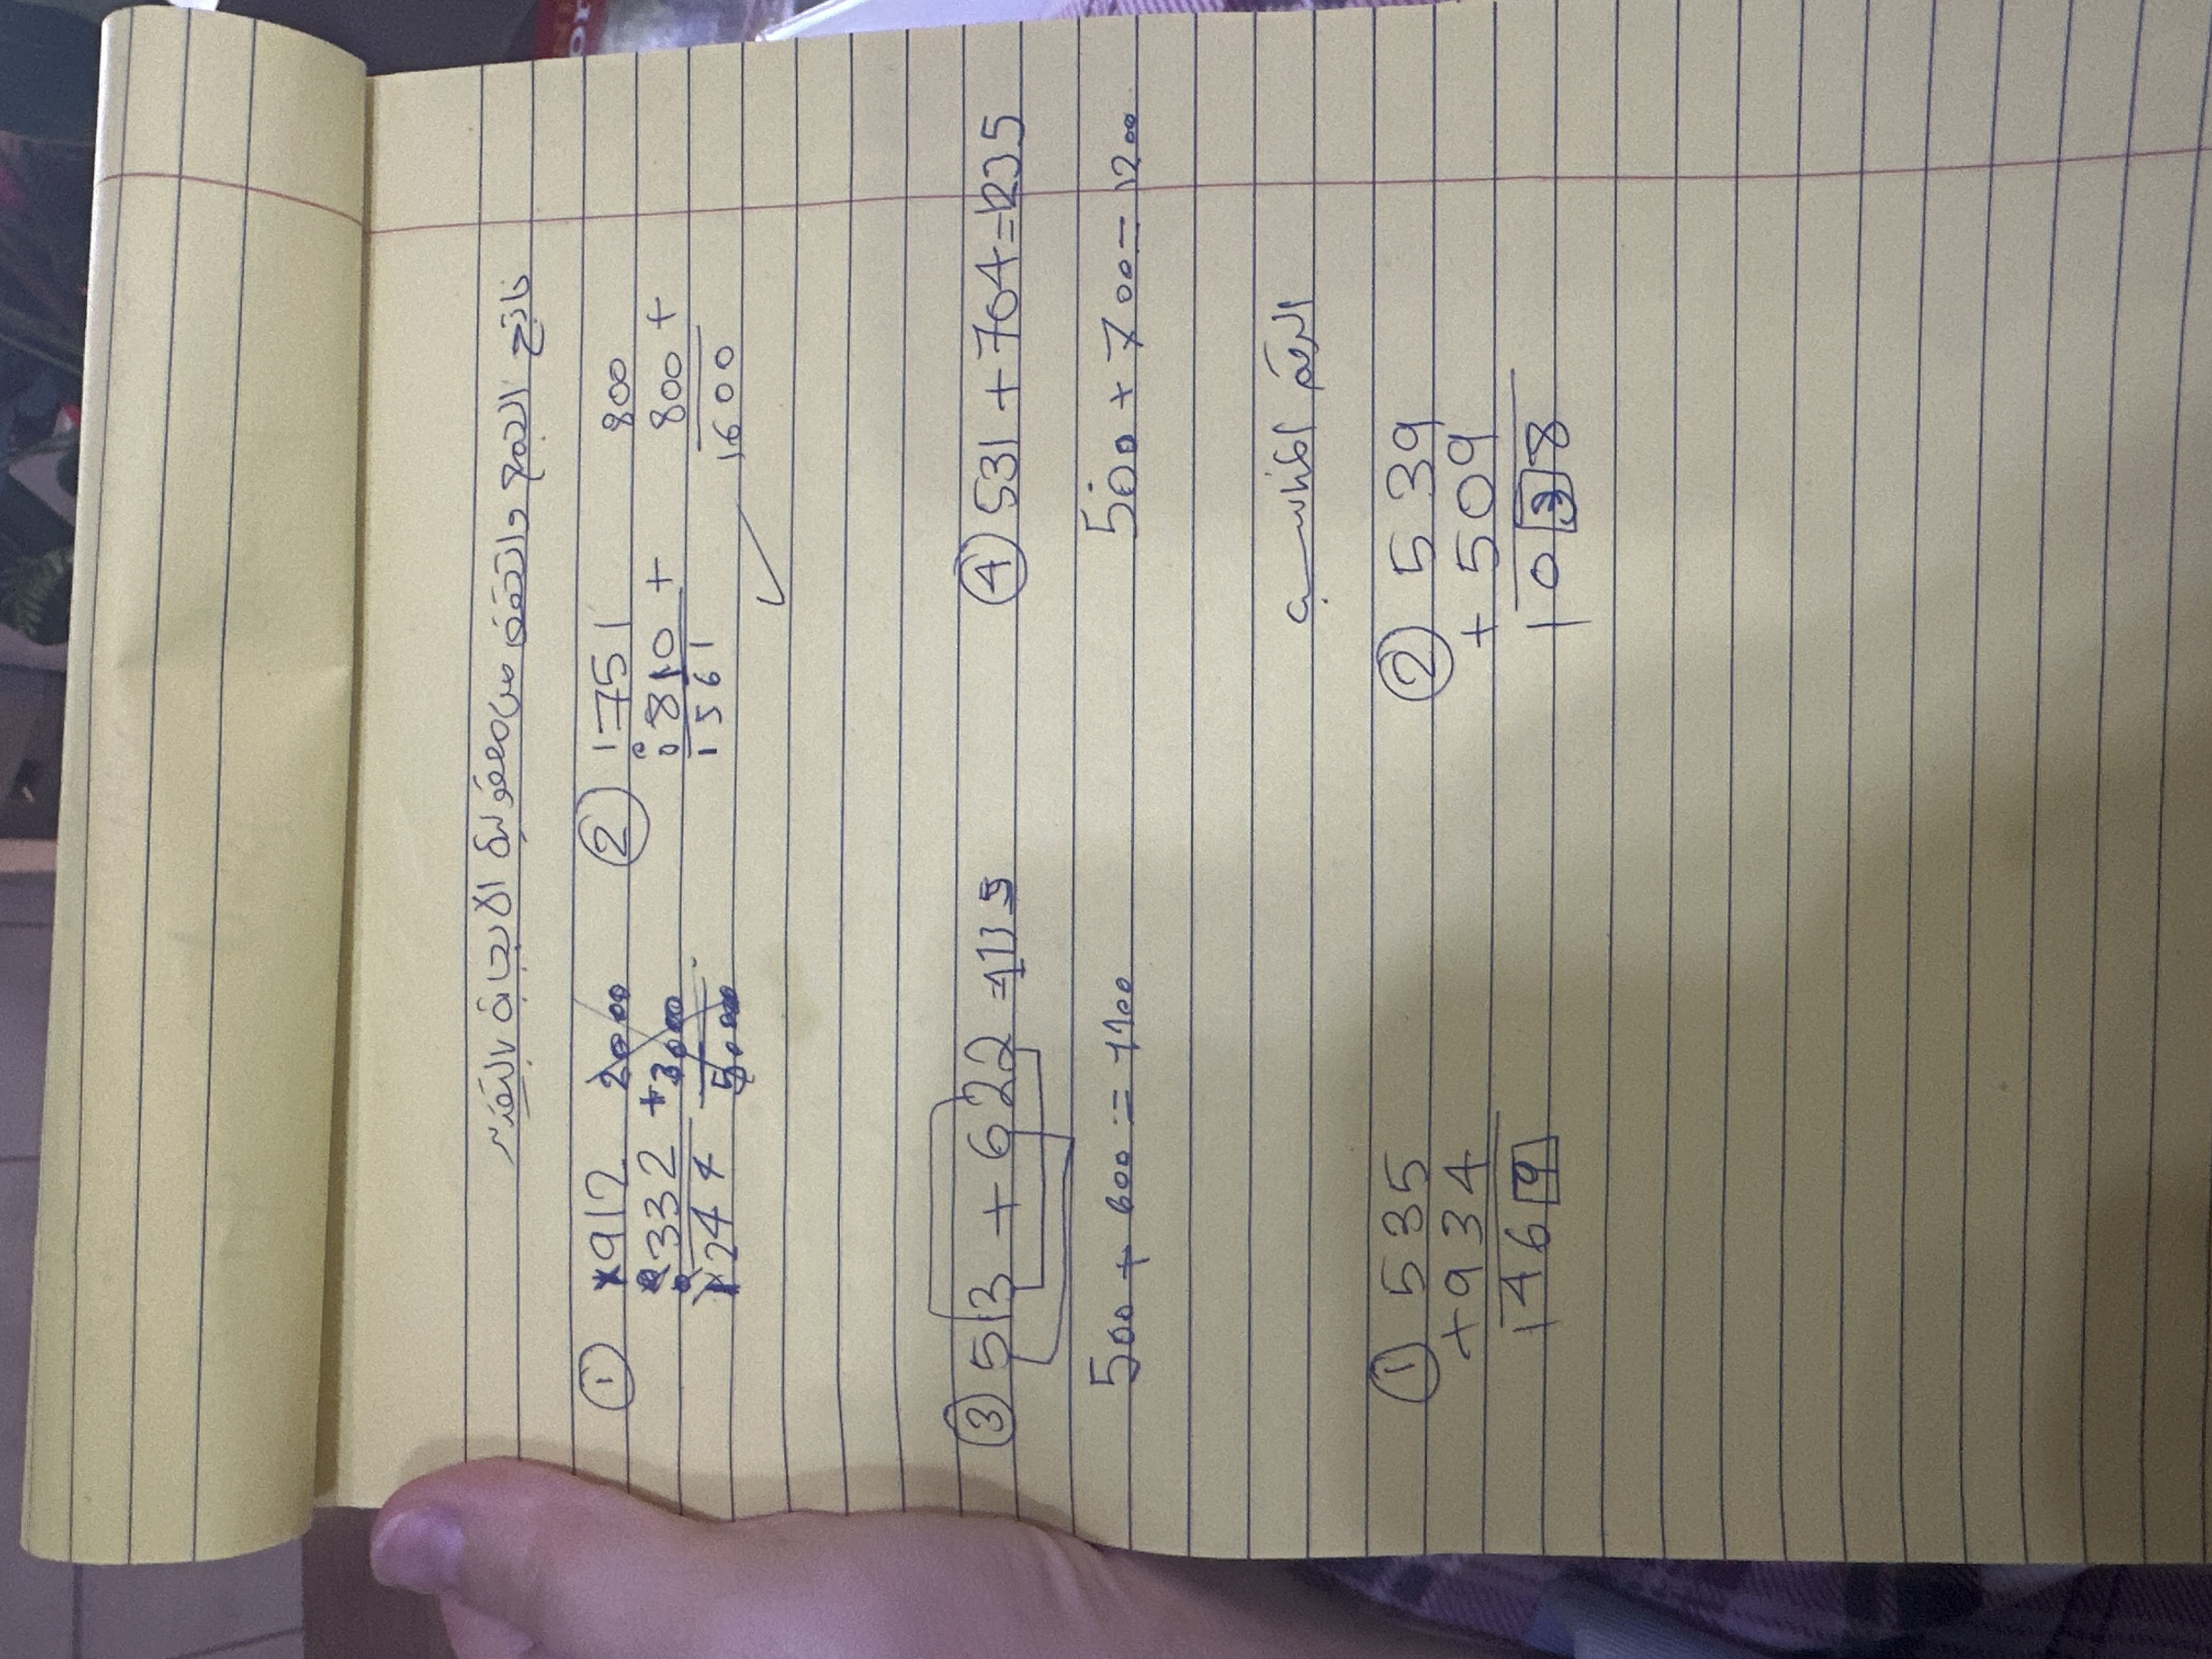 ناتج الجمع والتحقق من معقولية الاجابة بالتقدير
① 912 2000 ② 1751 800
332 +3000 0810 + 800 +
1244 5000 1561 1600
③ 513 + 622 = 1135 ④ 531 + 704 = 1235
500 + 600 = 1100 500 + 700 = 1200
الرقم المناسب
① 535 ② 539
+ 934 + 509
1469 1038